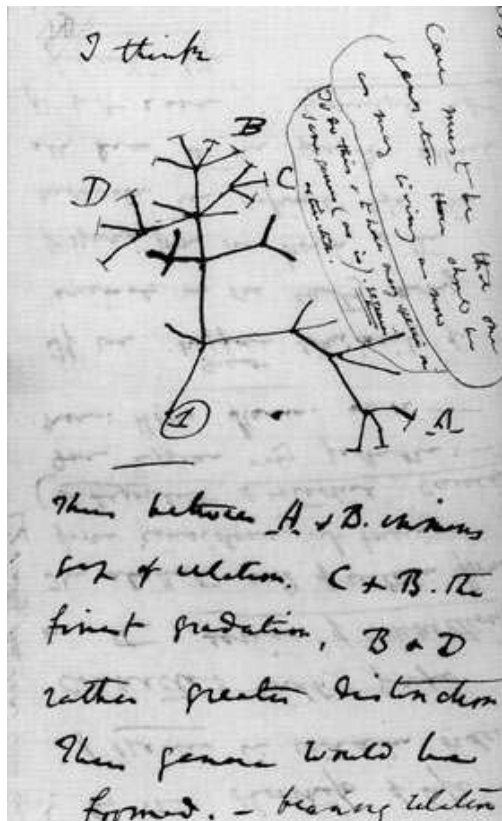 I think
B
C
D
A
1
Case must be that one
generation then should be
as many living as now
To do this & to have many species in
same genus (as is) requires
extinction.
Thus between A & B. immens
gap of relation. C & B. the
finest gradation, B & D
rather greater distinction
Thus genera would be
formed. — bearing relation